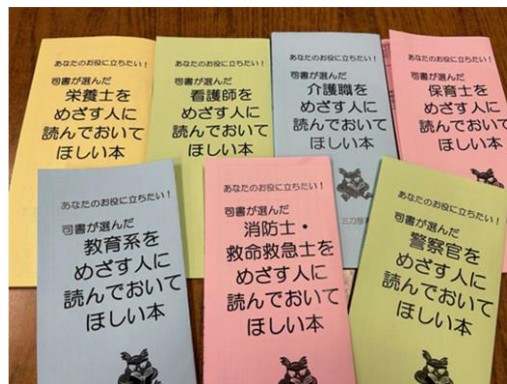 あなたのお役に立ちたい！
司書が選んだ
栄養士を
めざす人に
読んでおいて
ほしい本
あなたのお役に立ちたい！
司書が選んだ
看護師を
めざす人に
読んでおいて
ほしい本
あなたのお役に立ちたい！
司書が選んだ
介護職を
めざす人に
読んでおいて
ほしい本
あなたのお役に立ちたい！
司書が選んだ
保育士を
めざす人に
読んでおいて
ほしい本
あなたのお役に立ちたい！
司書が選んだ
教育系を
めざす人に
読んでおいて
ほしい本
あなたのお役に立ちたい！
司書が選んだ
消防士・
救命救急士を
めざす人に
読んでおいて
ほしい本
あなたのお役に立ちたい！
司書が選んだ
警察官を
めざす人に
読んでおいて
ほしい本